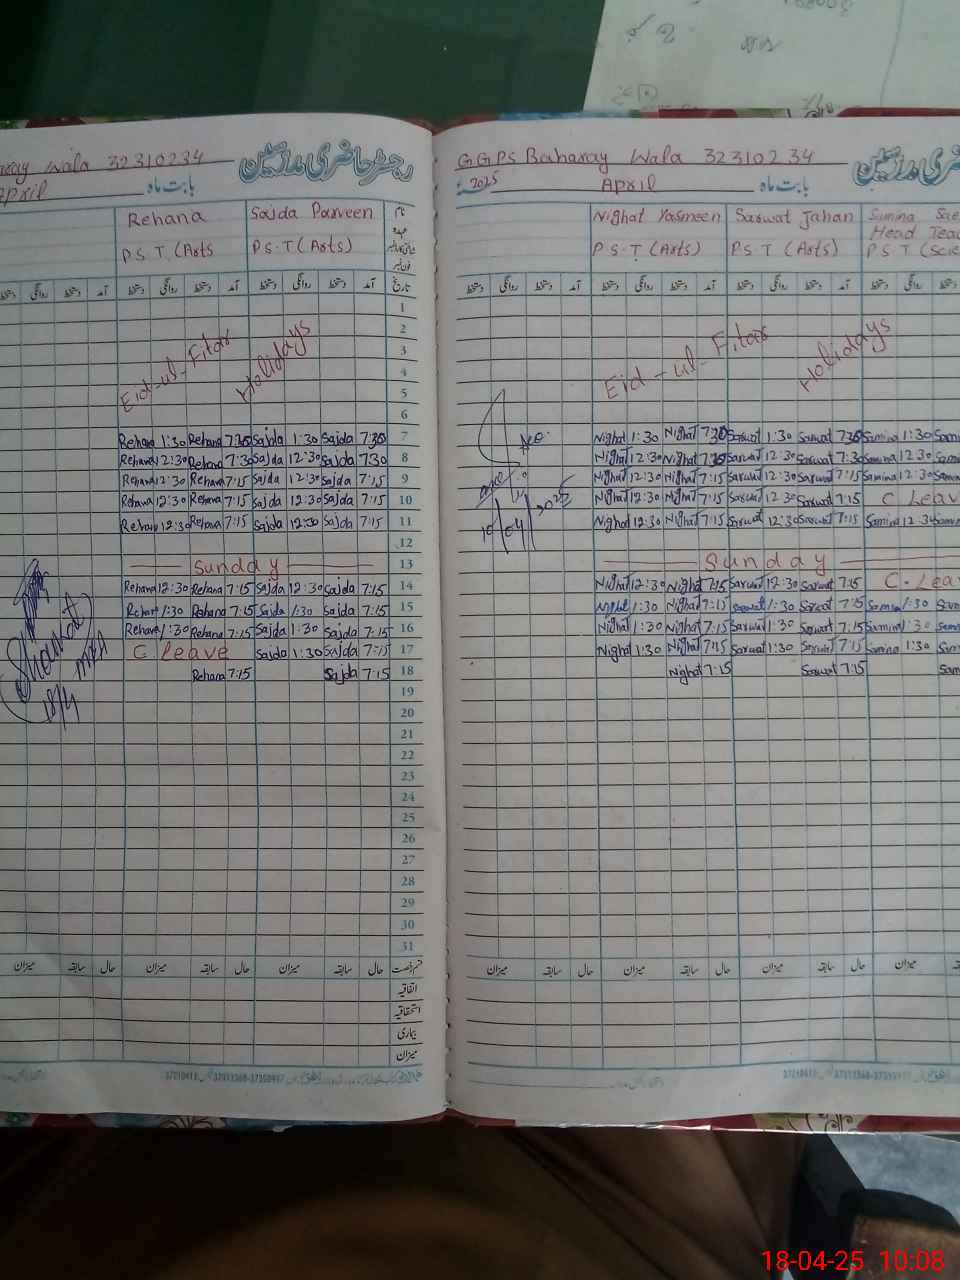 رجسٹر حاضری مدرسین
aray Wala 32310234
April بابت ماہ
Rehana Sajda Parveen نام
P.S.T (Arts P.S.T (Arts) عہدہ
دستخط روانگی دستخط آمد دستخط روانگی دستخط آمد دستخط روانگی دستخط آمد تاریخ
1
2
3
4
5
Eid-ul-Fitar Holidays
6
Rehana 1:30 Rehana 7:30 Sajda 1:30 Sajda 7:30 7
Rehana 12:30 Rehana 7:30 Sajda 12:30 Sajda 7:30 8
Rehana 12:30 Rehana 7:15 Sajda 12:30 Sajda 7:15 9
Rehana 12:30 Rehana 7:15 Sajda 12:30 Sajda 7:15 10
Rehana 12:30 Rehana 7:15 Sajda 12:30 Sajda 7:15 11
12
Sunday 13
Rehana 12:30 Rehana 7:15 Sajda 12:30 Sajda 7:15 14
Rehana 1:30 Rehana 7:15 Sajda 1:30 Sajda 7:15 15
Rehana 1:30 Rehana 7:15 Sajda 1:30 Sajda 7:15 16
C. Leave Sajda 1:30 Sajda 7:15 17
Rehana 7:15 Sajda 7:15 18
Shaukat
MEA
18/4
19
20
21
22
23
24
25
26
27
28
29
30
31
میزان سابقہ حال میزان سابقہ حال میزان سابقہ حال قسم رخصت
اتفاقیہ
استحقاقیہ
بیماری
میزان
GGPS Baharay Wala 32310234
2025 April بابت ماہ
Nighat Yasmeen Sarwat Jahan Samina Sae
Head Teac
P.S.T (Arts) P.S.T (Arts) P.S.T (Scie
دستخط روانگی دستخط آمد دستخط روانگی دستخط آمد دستخط روانگی دستخط آمد دستخط روانگی دستخط
Eid-ul-Fitar Holidays
Nighat 1:30 Nighat 7:30 Sarwat 1:30 Sarwat 7:30 Samina 1:30 Sami
Nighat 12:30 Nighat 7:30 Sarwat 12:30 Sarwat 7:30 Samina 12:30 Sami
Nighat 12:30 Nighat 7:15 Sarwat 12:30 Sarwat 7:15 Samina 12:30 Samin
Nighat 12:30 Nighat 7:15 Sarwat 12:30 Sarwat 7:15 C Leav
Nighat 12:30 Nighat 7:15 Sarwat 12:30 Sarwat 7:15 Samina 12:30 Samin
10/04/2025
Sunday
Nighat 12:30 Nighat 7:15 Sarwat 12:30 Sarwat 7:15 C. Leav
Nighat 1:30 Nighat 7:15 Sarwat 1:30 Sarwat 7:15 Samina 1:30 Sam
Nighat 1:30 Nighat 7:15 Sarwat 1:30 Sarwat 7:15 Samina 1:30 Sam
Nighat 1:30 Nighat 7:15 Sarwat 1:30 Sarwat 7:15 Samina 1:30 Sam
Nighat 7:15 Sarwat 7:15 Sam
میزان سابقہ حال میزان سابقہ حال میزان سابقہ حال میزان
18-04-25 10:08